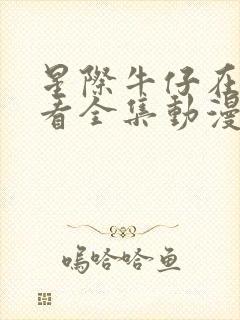 星際牛仔在
看全集動漫
嗚哈哈鱼